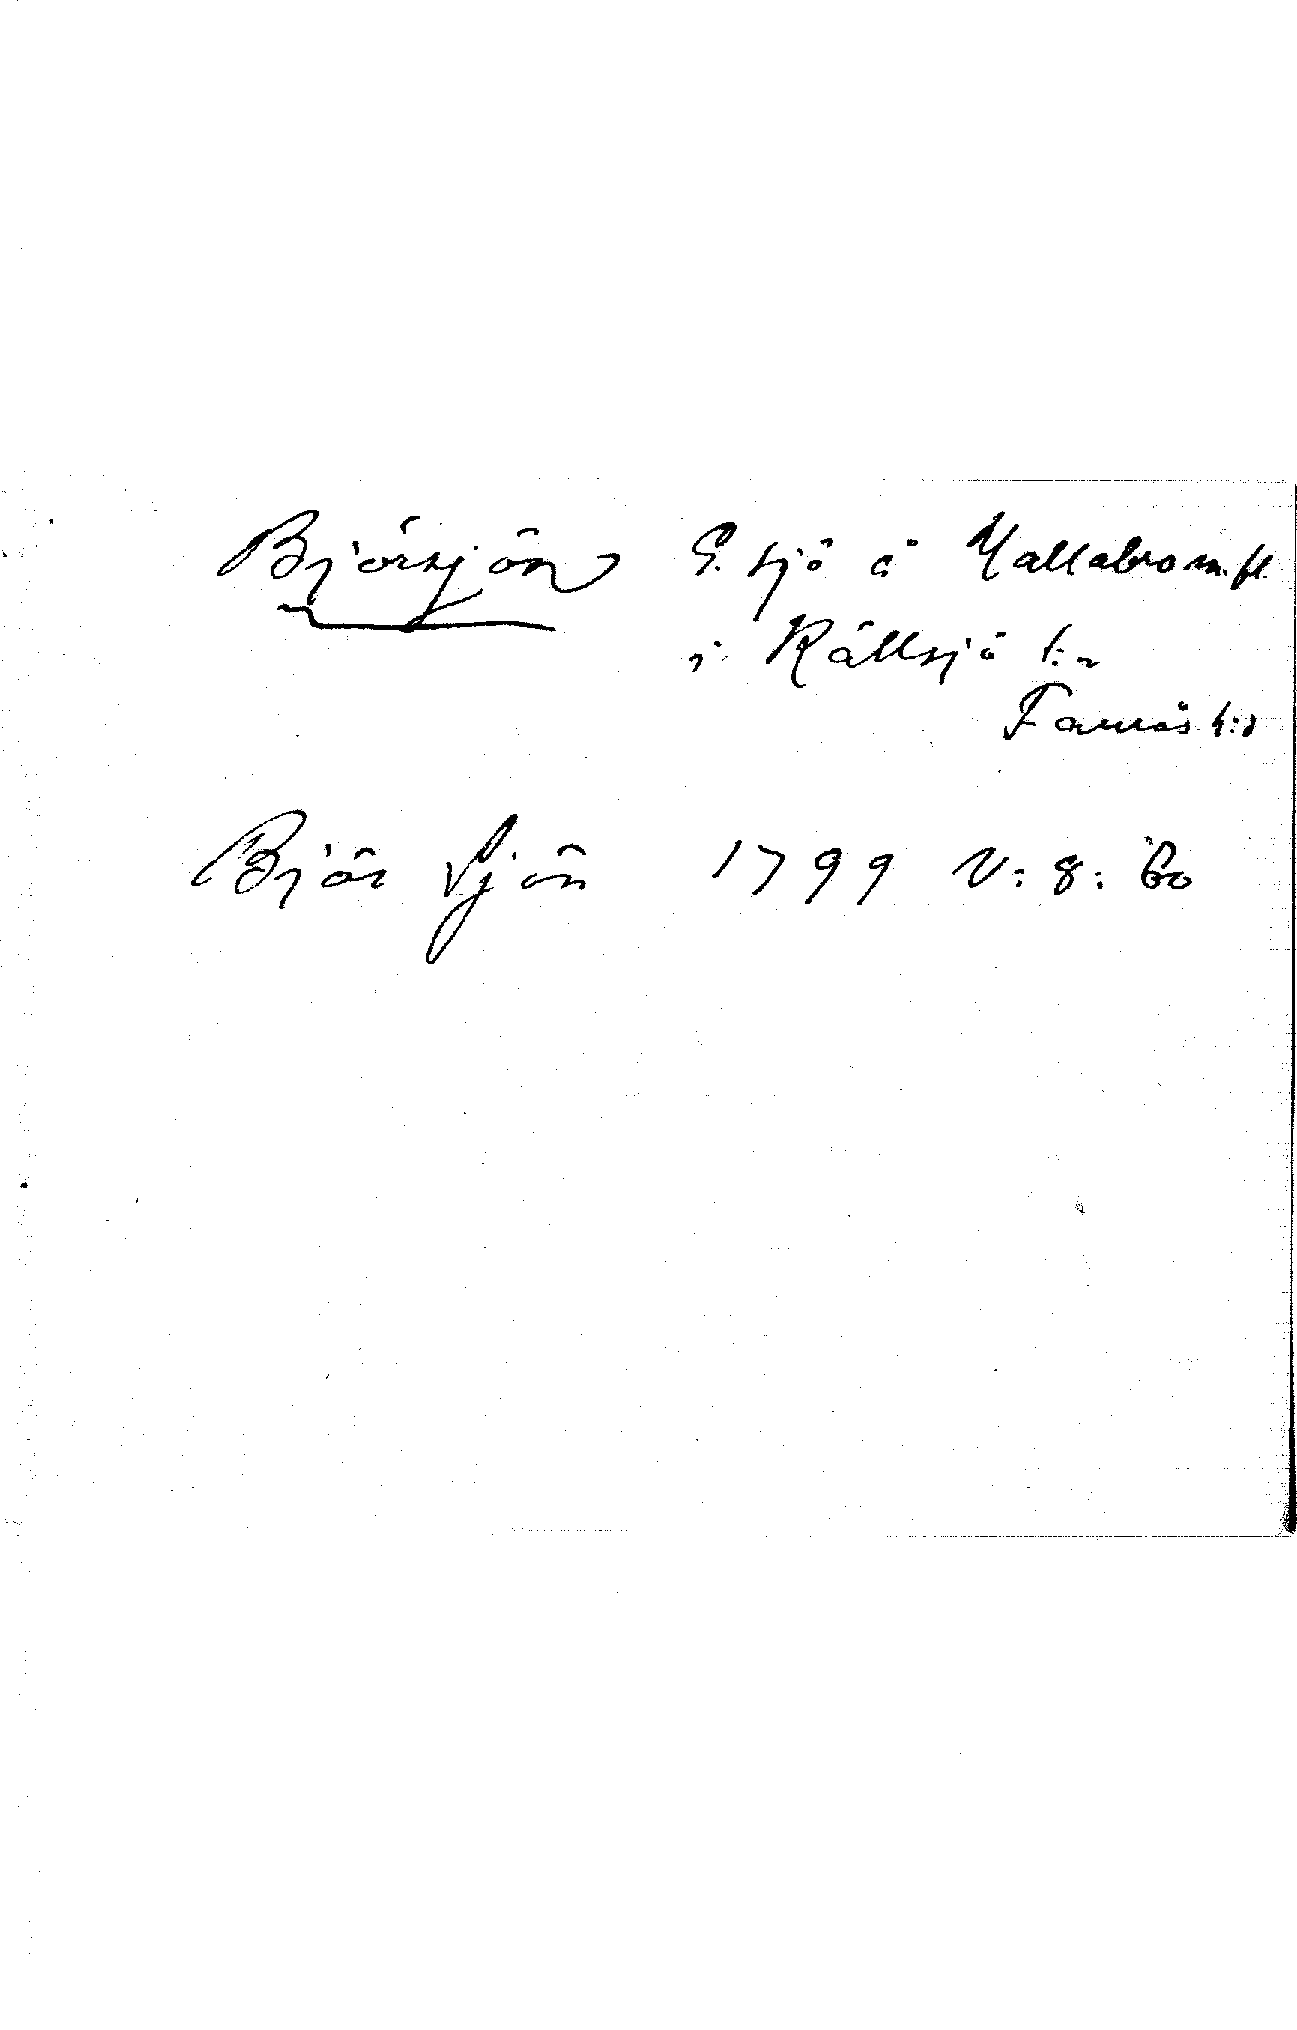 Björsjön S. sjö å Hallabro m.fl.
i Källsjö s:n
Faurås h:d
Björ Sjön 1799 V: 8: 60